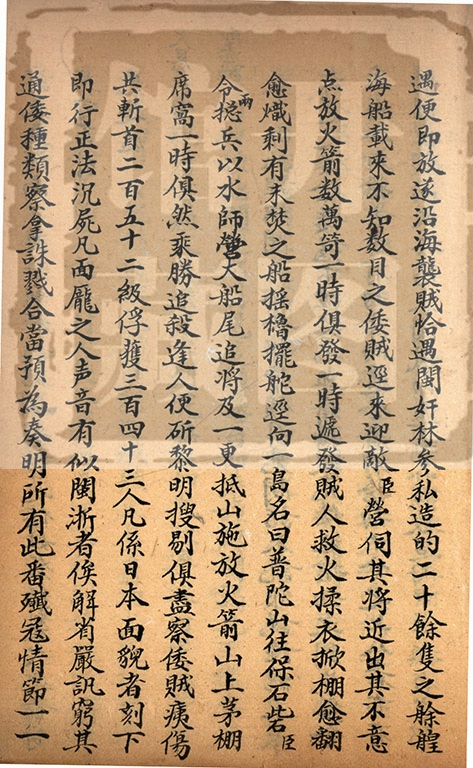 遇便即放遂沿海襲賊恰遇閩奸林參私造的二十餘隻之艅艎
海船載來不知數目之倭賊逕來迎敵臣營伺其將近出其不意
点放火箭数萬笴一時俱發一時遞發賊人救火揉衣掀棚愈翻
愈熾剩有未焚之船搖櫓擺舵逕向一島名曰普陀山往保石砦臣
令兩摠兵以水師營大船尾追將及一更抵山施放火箭山上茅棚
席窩一時俱然乘勝追殺逢人便斫黎明搜剔俱盡察倭賊痍傷
共斬首二百五十二級俘獲三百四十三人凡係日本面貌者刻下
即行正法沉屍凡面龎之人声音有似閩浙者俟解省嚴訊窮其
通倭種類察拿誅戮合當預為奏明所有此番殲冦情節一一